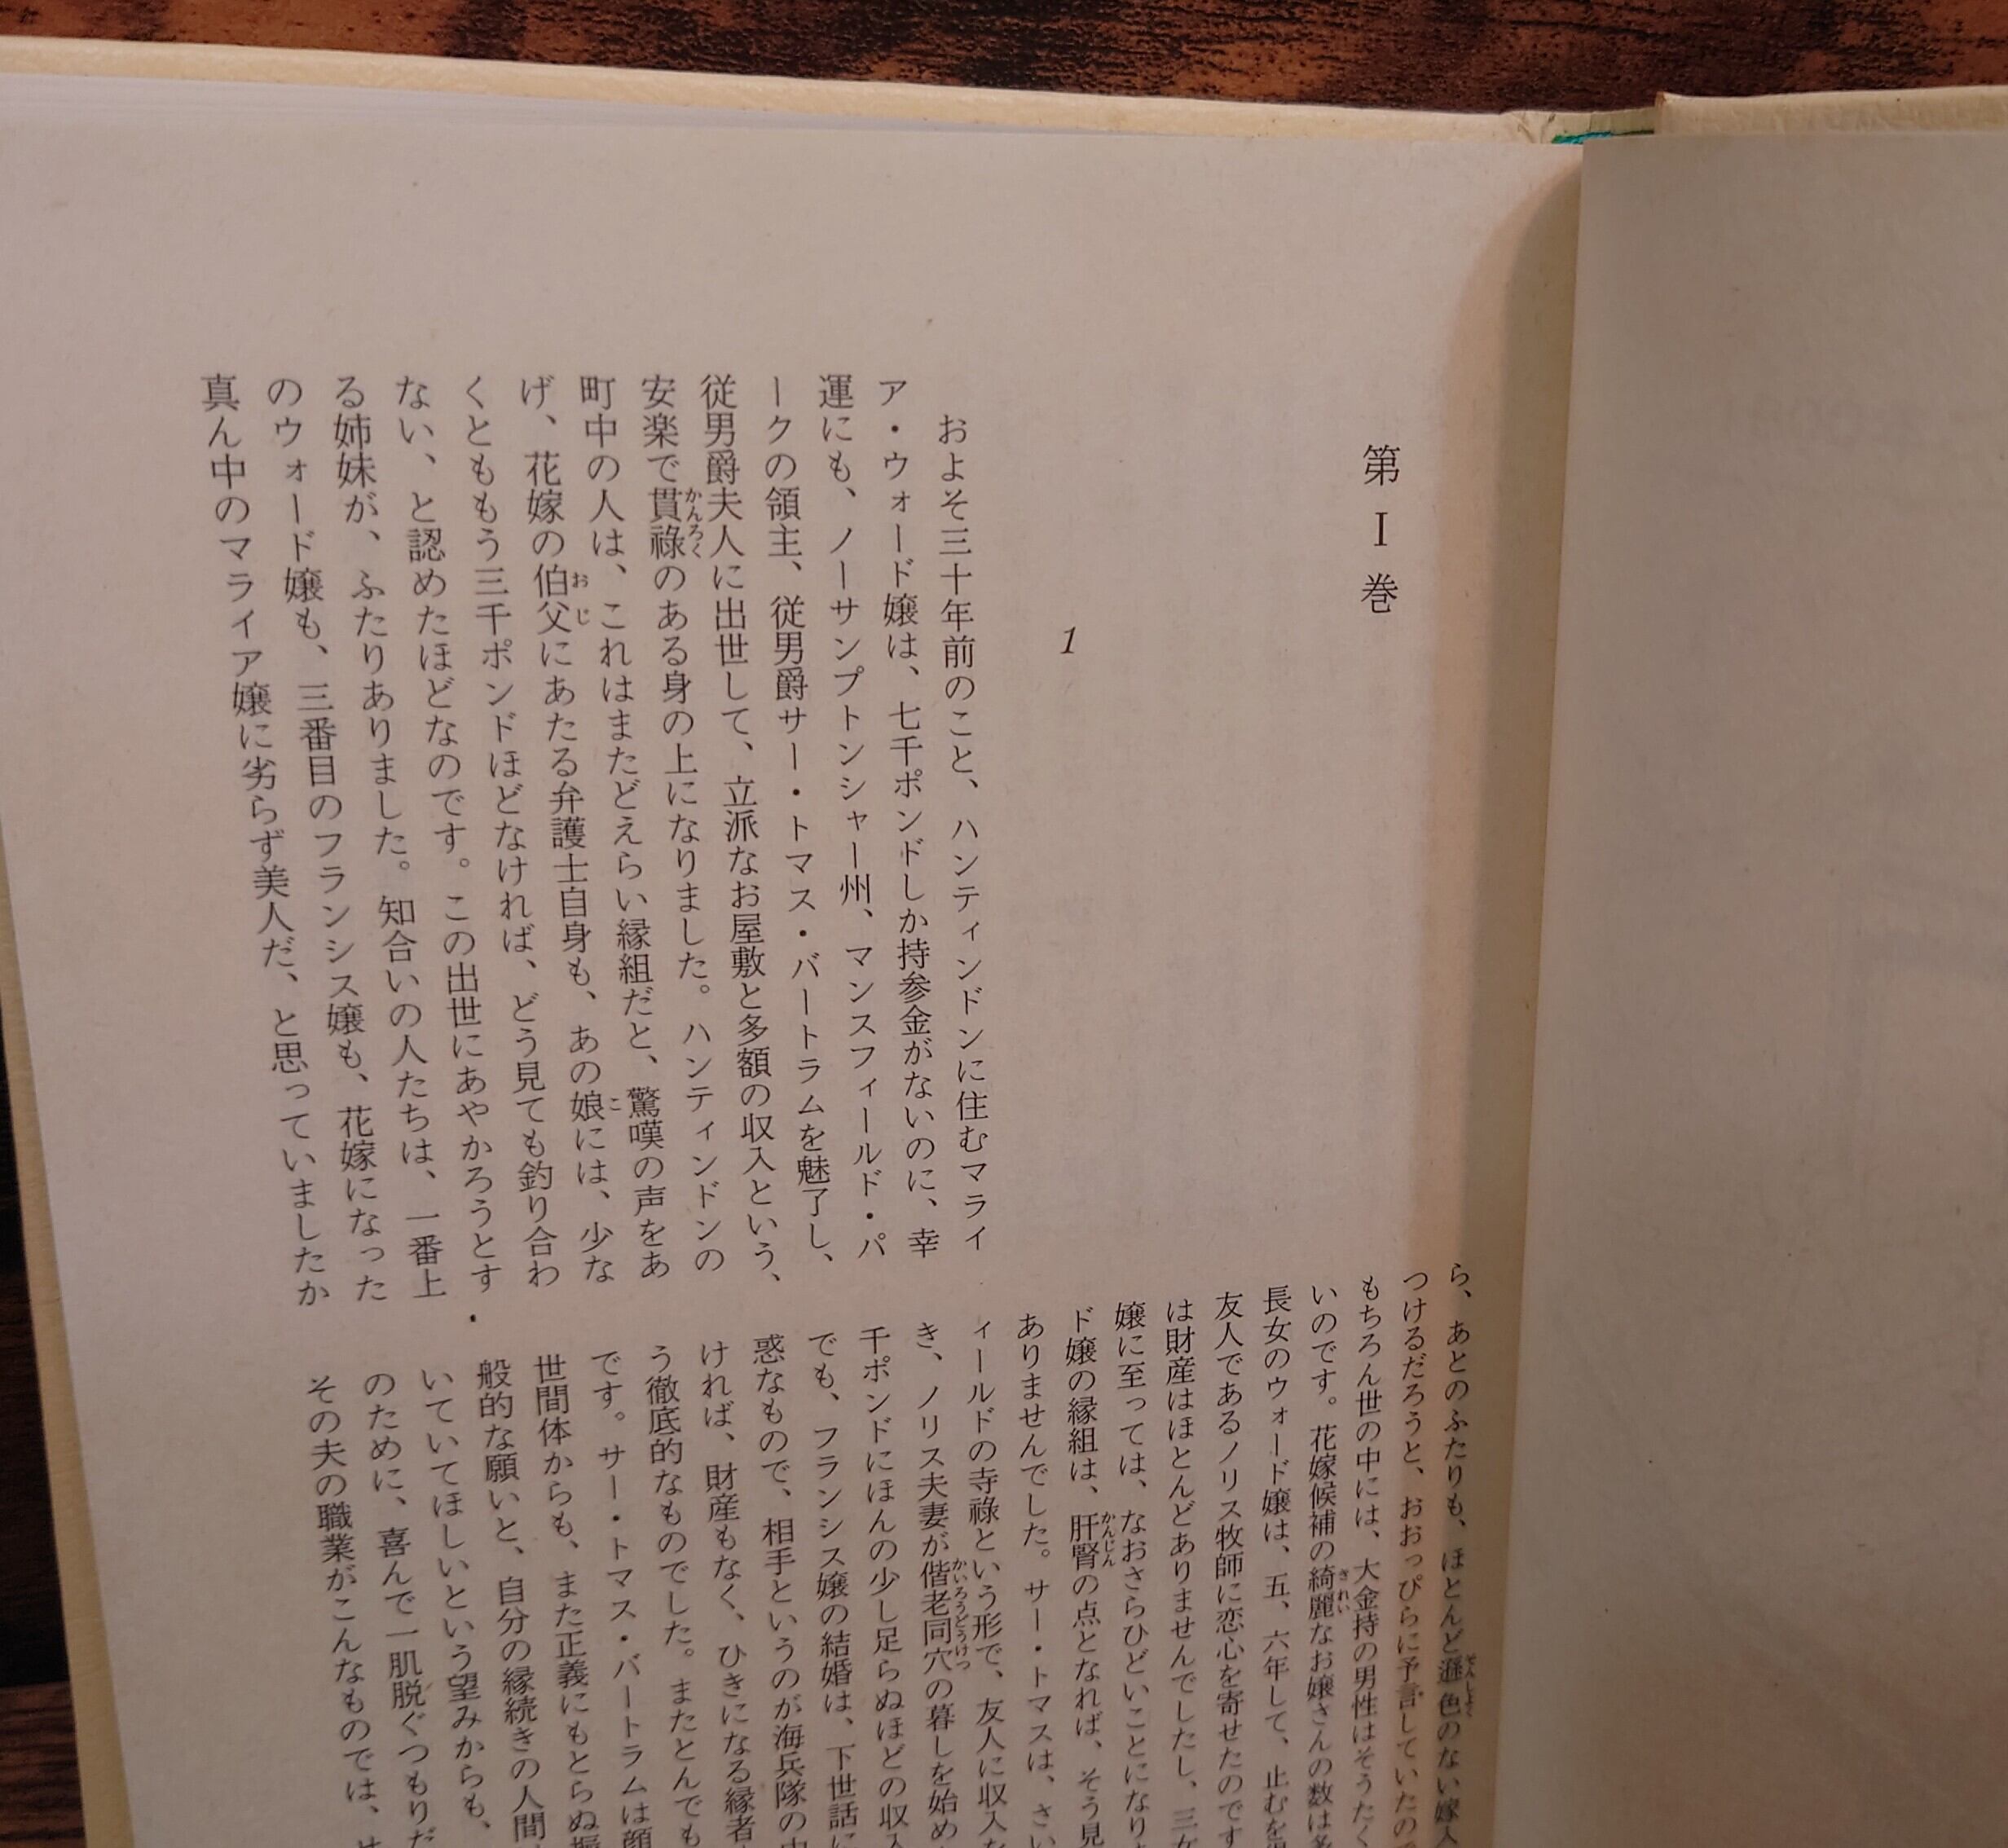 第Ⅰ巻
1
およそ三十年前のこと、ハンティンドンに住むマライ
ア・ウォード嬢は、七千ポンドしか持参金がないのに、幸
運にも、ノーサンプトンシャー州、マンスフィールド・パ
ークの領主、従男爵サー・トマス・バートラムを魅了し、
従男爵夫人に出世して、立派なお屋敷と多額の収入という、
安楽で貫祿のある身の上になりました。ハンティンドンの
町中の人は、これはまたどえらい縁組だと、驚嘆の声をあ
げ、花嫁の伯父にあたる弁護士自身も、あの娘には、少な
くとももう三千ポンドほどなければ、どう見ても釣り合わ
ない、と認めたほどなのです。この出世にあやかろうとす
る姉妹が、ふたりありました。知合いの人たちは、一番上
のウォード嬢も、三番目のフランシス嬢も、花嫁になった
真ん中のマライア嬢に劣らず美人だ、と思っていましたか
ら、あとのふたりも、ほとんど遜色のない嫁入
つけるだろうと、おおっぴらに予言していたので
もちろん世の中には、大金持の男性はそうたく
いのです。花嫁候補の綺麗なお嬢さんの数は多
長女のウォード嬢は、五、六年して、止むを得
友人であるノリス牧師に恋心を寄せたのです
は財産はほとんどありませんでしたし、三女
嬢に至っては、なおさらひどいことになりま
ド嬢の縁組は、肝腎の点となれば、そう見
ありませんでした。サー・トマスは、さい
ィールドの寺祿という形で、友人に収入を
き、ノリス夫妻が偕老同穴の暮しを始め
千ポンドにほんの少し足らぬほどの収入
でも、フランシス嬢の結婚は、下世話に
惑なもので、相手というのが海兵隊の中
ければ、財産もなく、ひきになる縁者
う徹底的なものでした。またとんでも
です。サー・トマス・バートラムは顔
世間体からも、また正義にもとらぬ振
般的な願いと、自分の縁続きの人間
いていてほしいという望みからも、
のために、喜んで一肌脱ぐつもりだ
その夫の職業がこんなものでは、せ